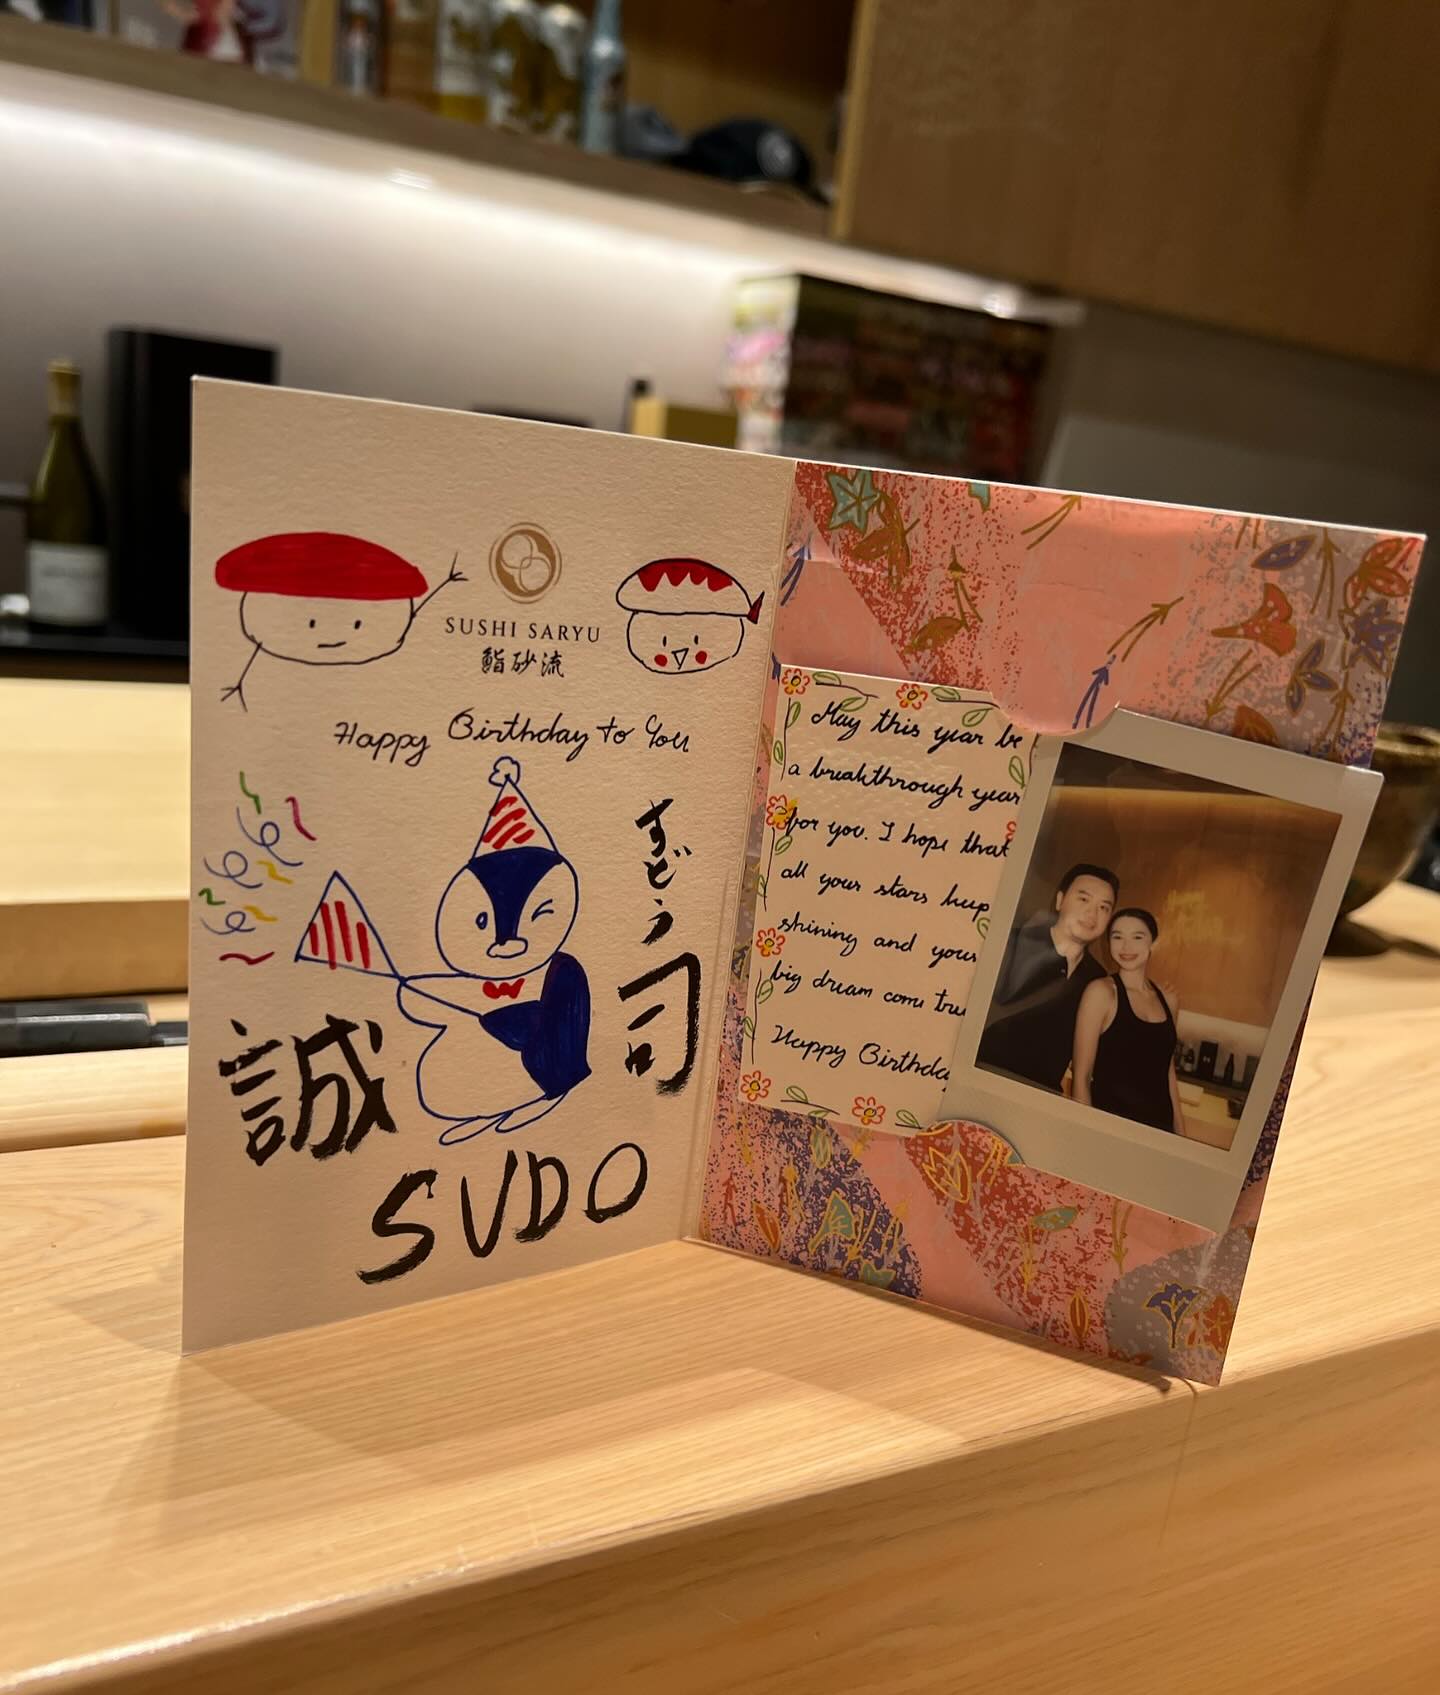 SUSHI SARYU
鮨砂流
Happy Birthday to You
すどう
司
誠
SUDO
May this year be
a breakthrough year
for you. I hope that
all your stars keep
shining and your
big dream come true
Happy Birthday